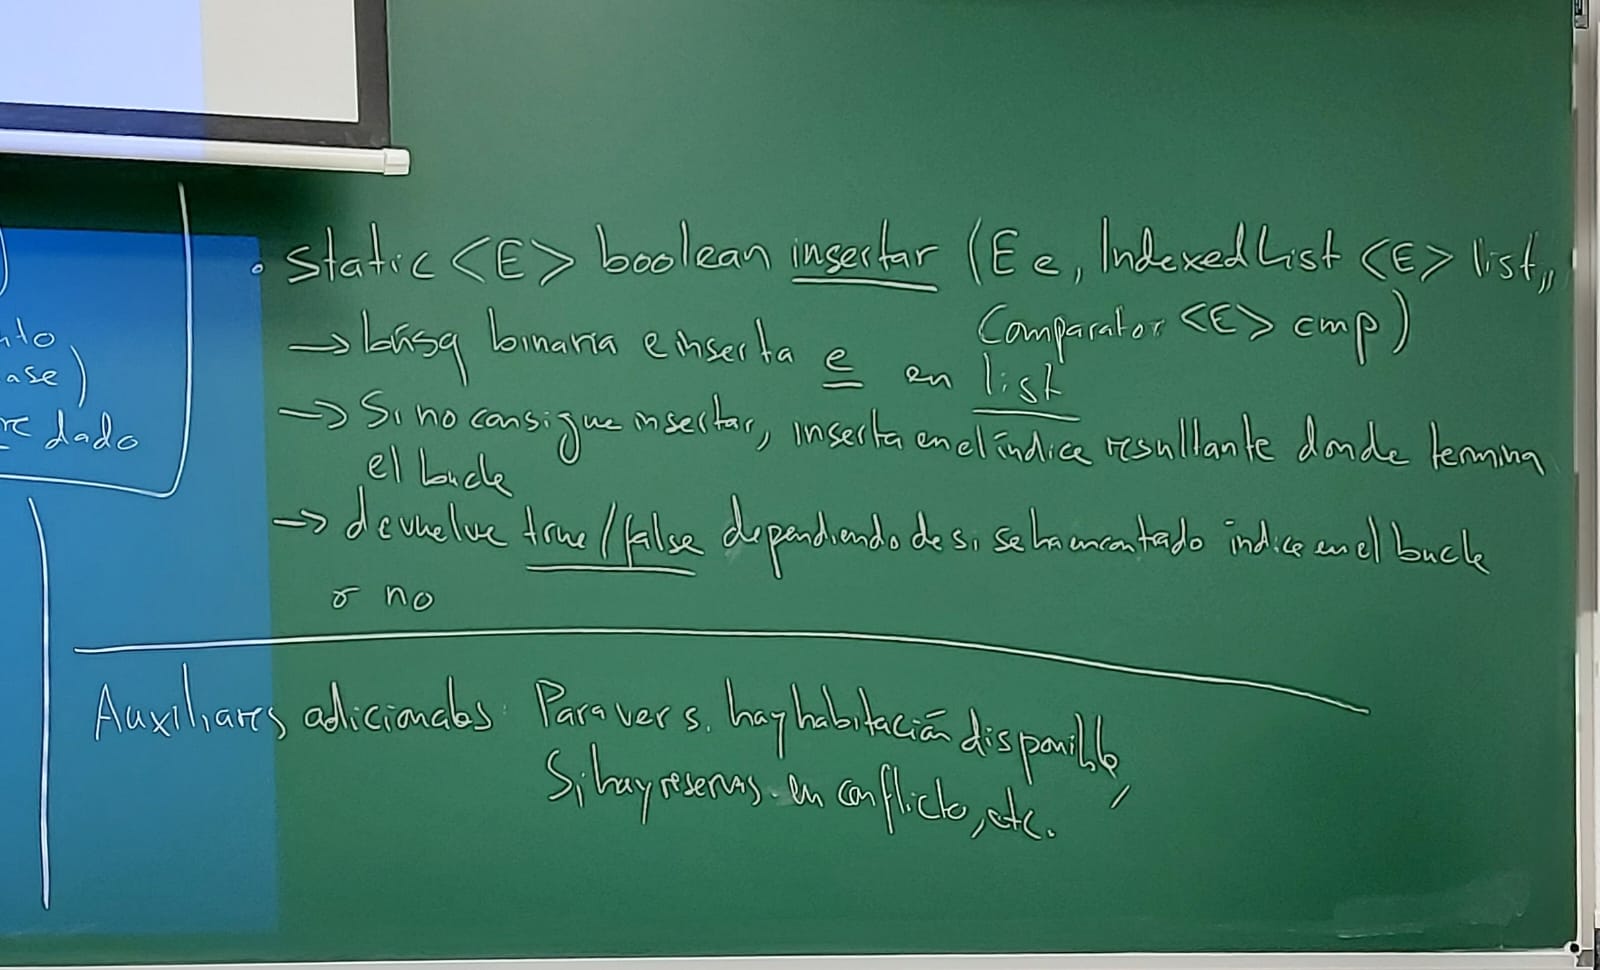 • static <E> boolean insertar (E e, IndexedList <E> list,,
Comparator <E> cmp)
→ búsq binaria e inserta e en list
→ Si no consigue insertar, inserta en el índice resultante donde termina
el bucle
→ devuelve true/false dependiendo de si se ha encontrado índice en el bucle
o no
nto
ase)
re dado
Auxiliares adicionales: Para ver si hay habitación disponible,
Si hay reservas en conflicto, etc.